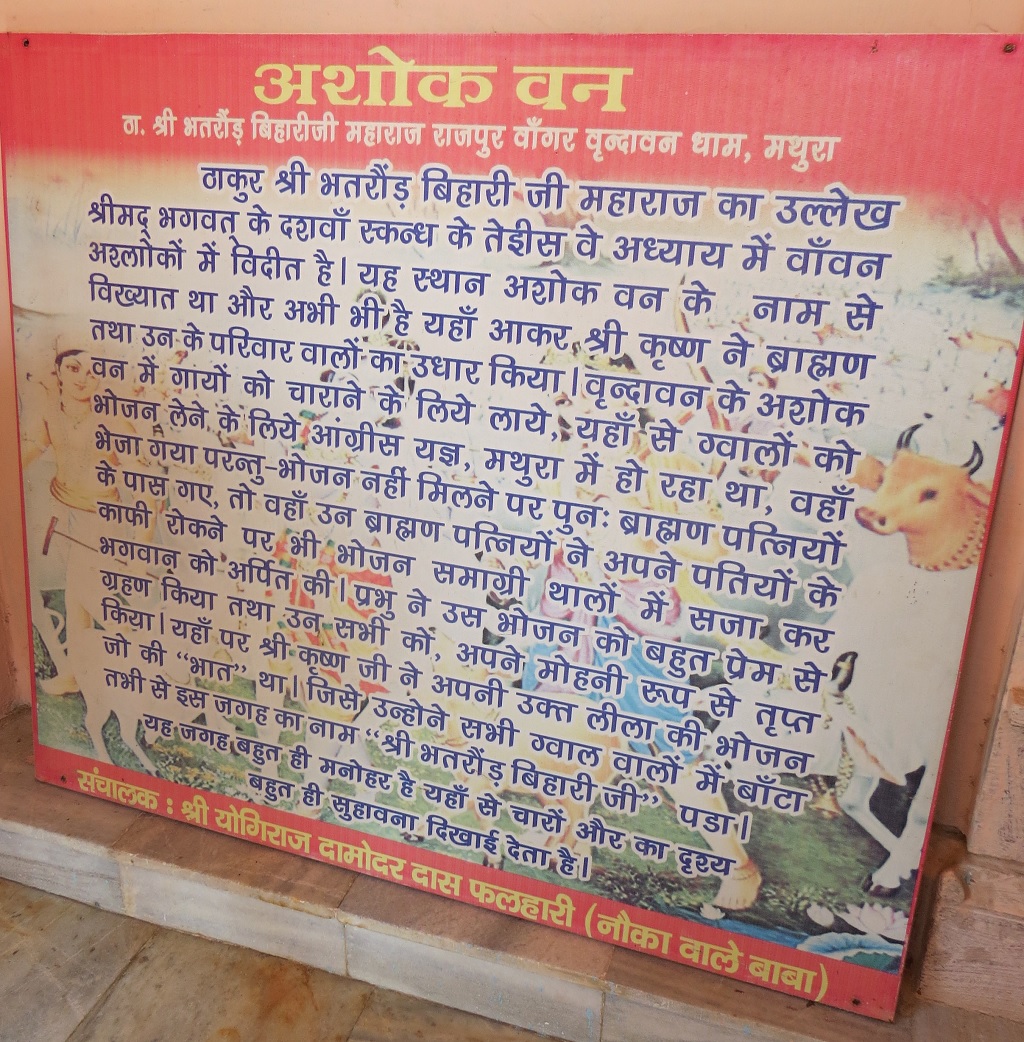 अशोक वन
ठा. श्री भतरौंड़ बिहारीजी महाराज राजपुर वाँगर वृन्दावन धाम, मथुरा
ठाकुर श्री भतरौंड़ बिहारी जी महाराज का उल्लेख
श्रीमद् भगवत् के दशवाँ स्कन्ध के तेईस वे अध्याय में वाँवन
अश्लोकों में विदीत है। यह स्थान अशोक वन के नाम से
विख्यात था और अभी भी है यहाँ आकर श्री कृष्ण ने ब्राह्मण
तथा उन के परिवार वालों का उधार किया। वृन्दावन के अशोक
वन में गायों को चाराने के लिये लाये, यहाँ से ग्वालों को
भोजन लेने के लिये आंग्रीस यज्ञ, मथुरा में हो रहा था, वहाँ
भेजा गया परन्तु-भोजन नहीं मिलने पर पुनः ब्राह्मण पत्नियों
के पास गए, तो वहाँ उन ब्राह्मण पत्नियों ने अपने पतियों के
काफी रोकने पर भी भोजन समाग्री थालों में सजा कर
भगवान् को अर्पित की। प्रभु ने उस भोजन को बहुत प्रेम से
ग्रहण किया तथा उन सभी कों, अपने मोहनी रूप से तृप्त
किया। यहाँ पर श्री कृष्ण जी ने अपनी उक्त लीला की भोजन
जो की “भात” था। जिसे उन्होने सभी ग्वाल वालों में बाँटा
तभी से इस जगह का नाम “श्री भतरौंड़ बिहारी जी” पडा।
यह जगह बहुत ही मनोहर है यहाँ से चारों और का दृश्य
बहुत ही सुहावना दिखाई देता है।
संचालक : श्री योगिराज दामोदर दास फलहारी (नौका वाले बाबा)